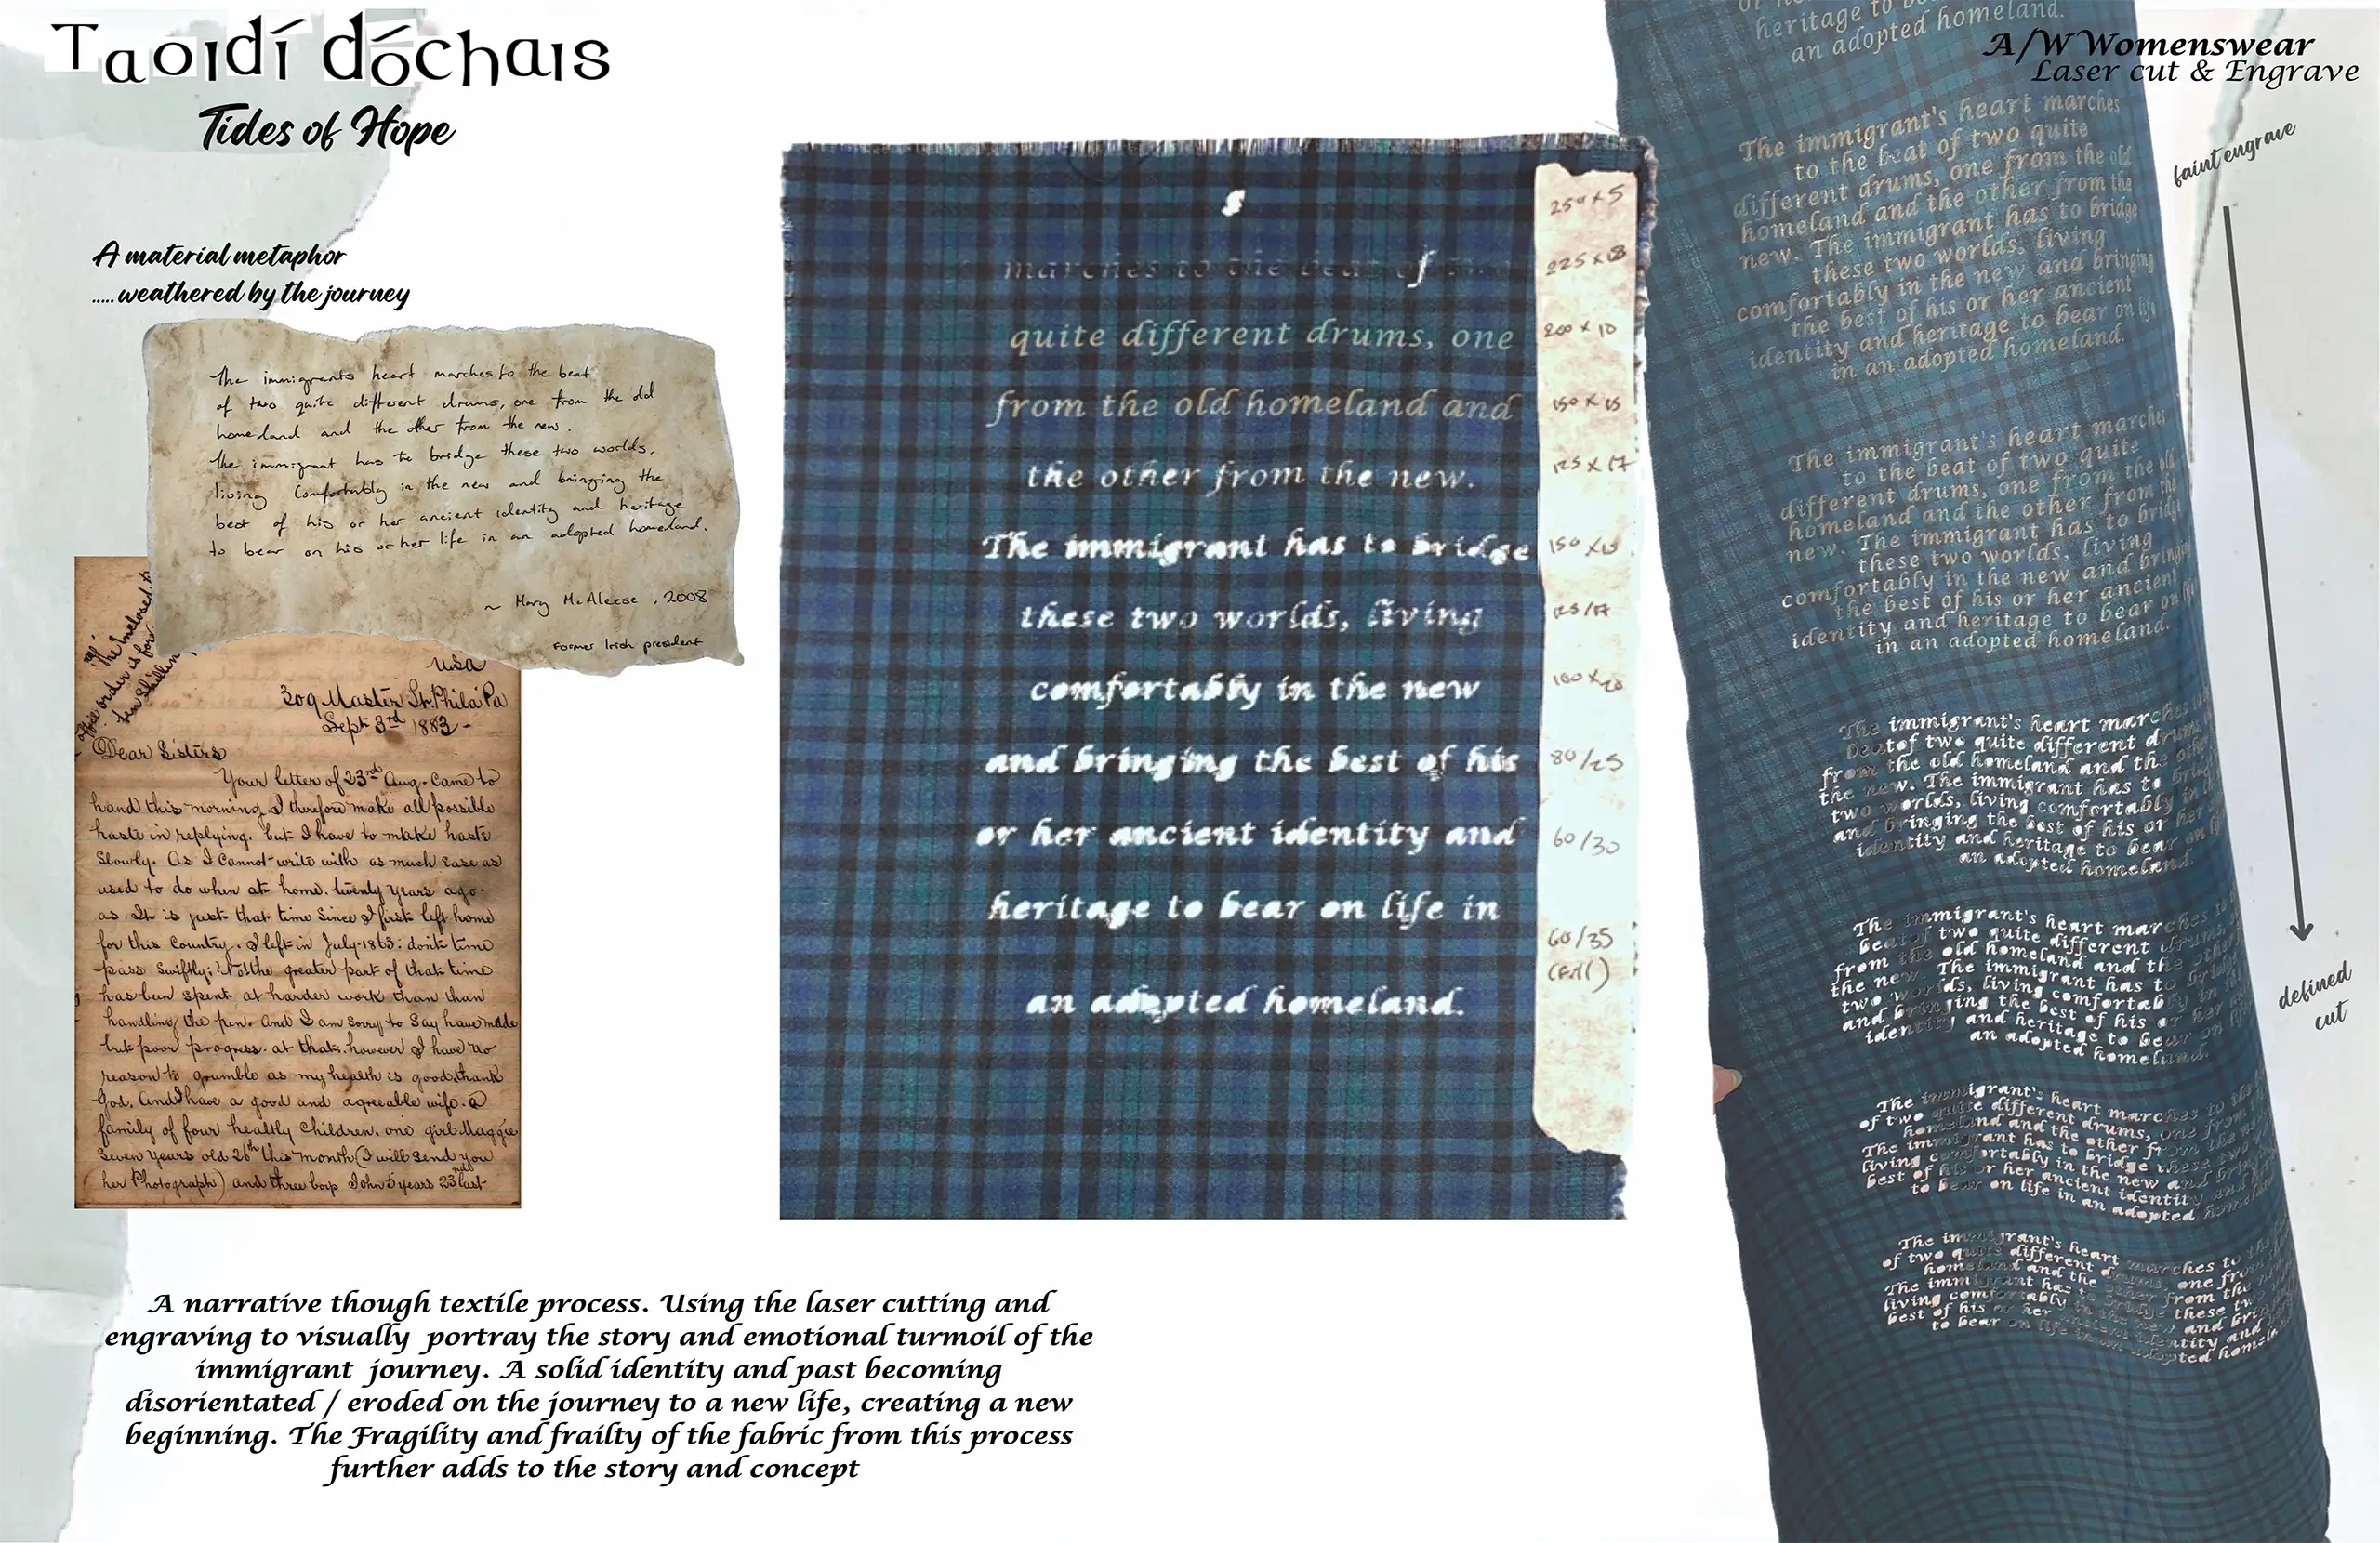 Taoidí dóchais
Tides of Hope
A/W Womenswear
Laser cut & Engrave
A material metaphor
.....weathered by the journey
The immigrants heart marches to the beat
of two quite different drums, one from the old
homeland and the other from the new.
The immigrant has to bridge these two worlds,
living comfortably in the new and bringing the
best of his or her ancient identity and heritage
to bear on his or her life in an adopted homeland.
~ Mary McAleese, 2008
Former Irish president
USA
309 Master St. Phila Pa
Sept 3rd 1883-
Dear Sisters
Your letter of 23rd Aug. came to
hand this morning. I therefore make all possible
haste in replying. but I have to make haste
slowly. As I cannot write with as much ease as
used to do when at home. twenty years ago.
as. It is just that time since I first left home
for this Country. I left in July 1863: dont time
pass swiftly; the greater part of that time
has been spent at harder work than than
handling the pen. and I am sorry to say have made
but poor progress at that. however I have no
reason to grumble as my health is good thank
God. and I have a good and agreeable wife. a
family of four healthy children. one girl Maggie
seven years old 26th this month (I will send you
her Photograph) and three boys John 5 years 23rd last
s
marches to the beat of two
quite different drums, one
from the old homeland and
the other from the new.
The immigrant has to bridge
these two worlds, living
comfortably in the new
and bringing the best of his
or her ancient identity and
heritage to bear on life in
an adopted homeland.
250 x 5
225 x 8
200 x 10
150 x 15
125 x 17
150 x 15
125/17
100 x 20
80/25
60/30
60/35
heritage to
an adopted homeland.
The immigrant's heart marches
to the beat of two quite
different drums, one from the old
homeland and the other from the
new. The immigrant has to bridge
these two worlds, living
comfortably in the new and bringing
the best of his or her ancient
identity and heritage to bear on life
in an adopted homeland.
The immigrant's heart marches
to the beat of two quite
different drums, one from the old
homeland and the other from the
new. The immigrant has to bridge
these two worlds, living
comfortably in the new and bringing
the best of his or her ancient
identity and heritage to bear on
in an adopted homeland.
The immigrant's heart marches
beat of two quite different drums,
from the old homeland and the other
the new. The immigrant has to
two worlds, living comfortably in
and bringing the best of his or her
identity and heritage to bear on
an adopted homeland.
The immigrant's heart marches to
beat of two quite different drums,
from the old homeland and the other
the new. The immigrant has to bridge
two worlds, living comfortably in
and bringing the best of his or her
identity and heritage to bear on
an adopted homeland.
The immigrant's heart marches to the
of two quite different drums, one from
homeland and the other from the new
The immigrant has to bridge these two
living comfortably in the new and bring
best of his or her ancient identity and
to bear on life in an adopted homeland
The immigrant's heart marches to the
of two quite different drums, one from
homeland and the other from the
The immigrant has to bridge these two
living comfortably in the new and bring
best of his or her ancient identity and
to bear on life in an adopted homeland
faint engrave
defined
cut
A narrative though textile process. Using the laser cutting and
engraving to visually portray the story and emotional turmoil of the
immigrant journey. A solid identity and past becoming
disorientated / eroded on the journey to a new life, creating a new
beginning. The Fragility and frailty of the fabric from this process
further adds to the story and concept